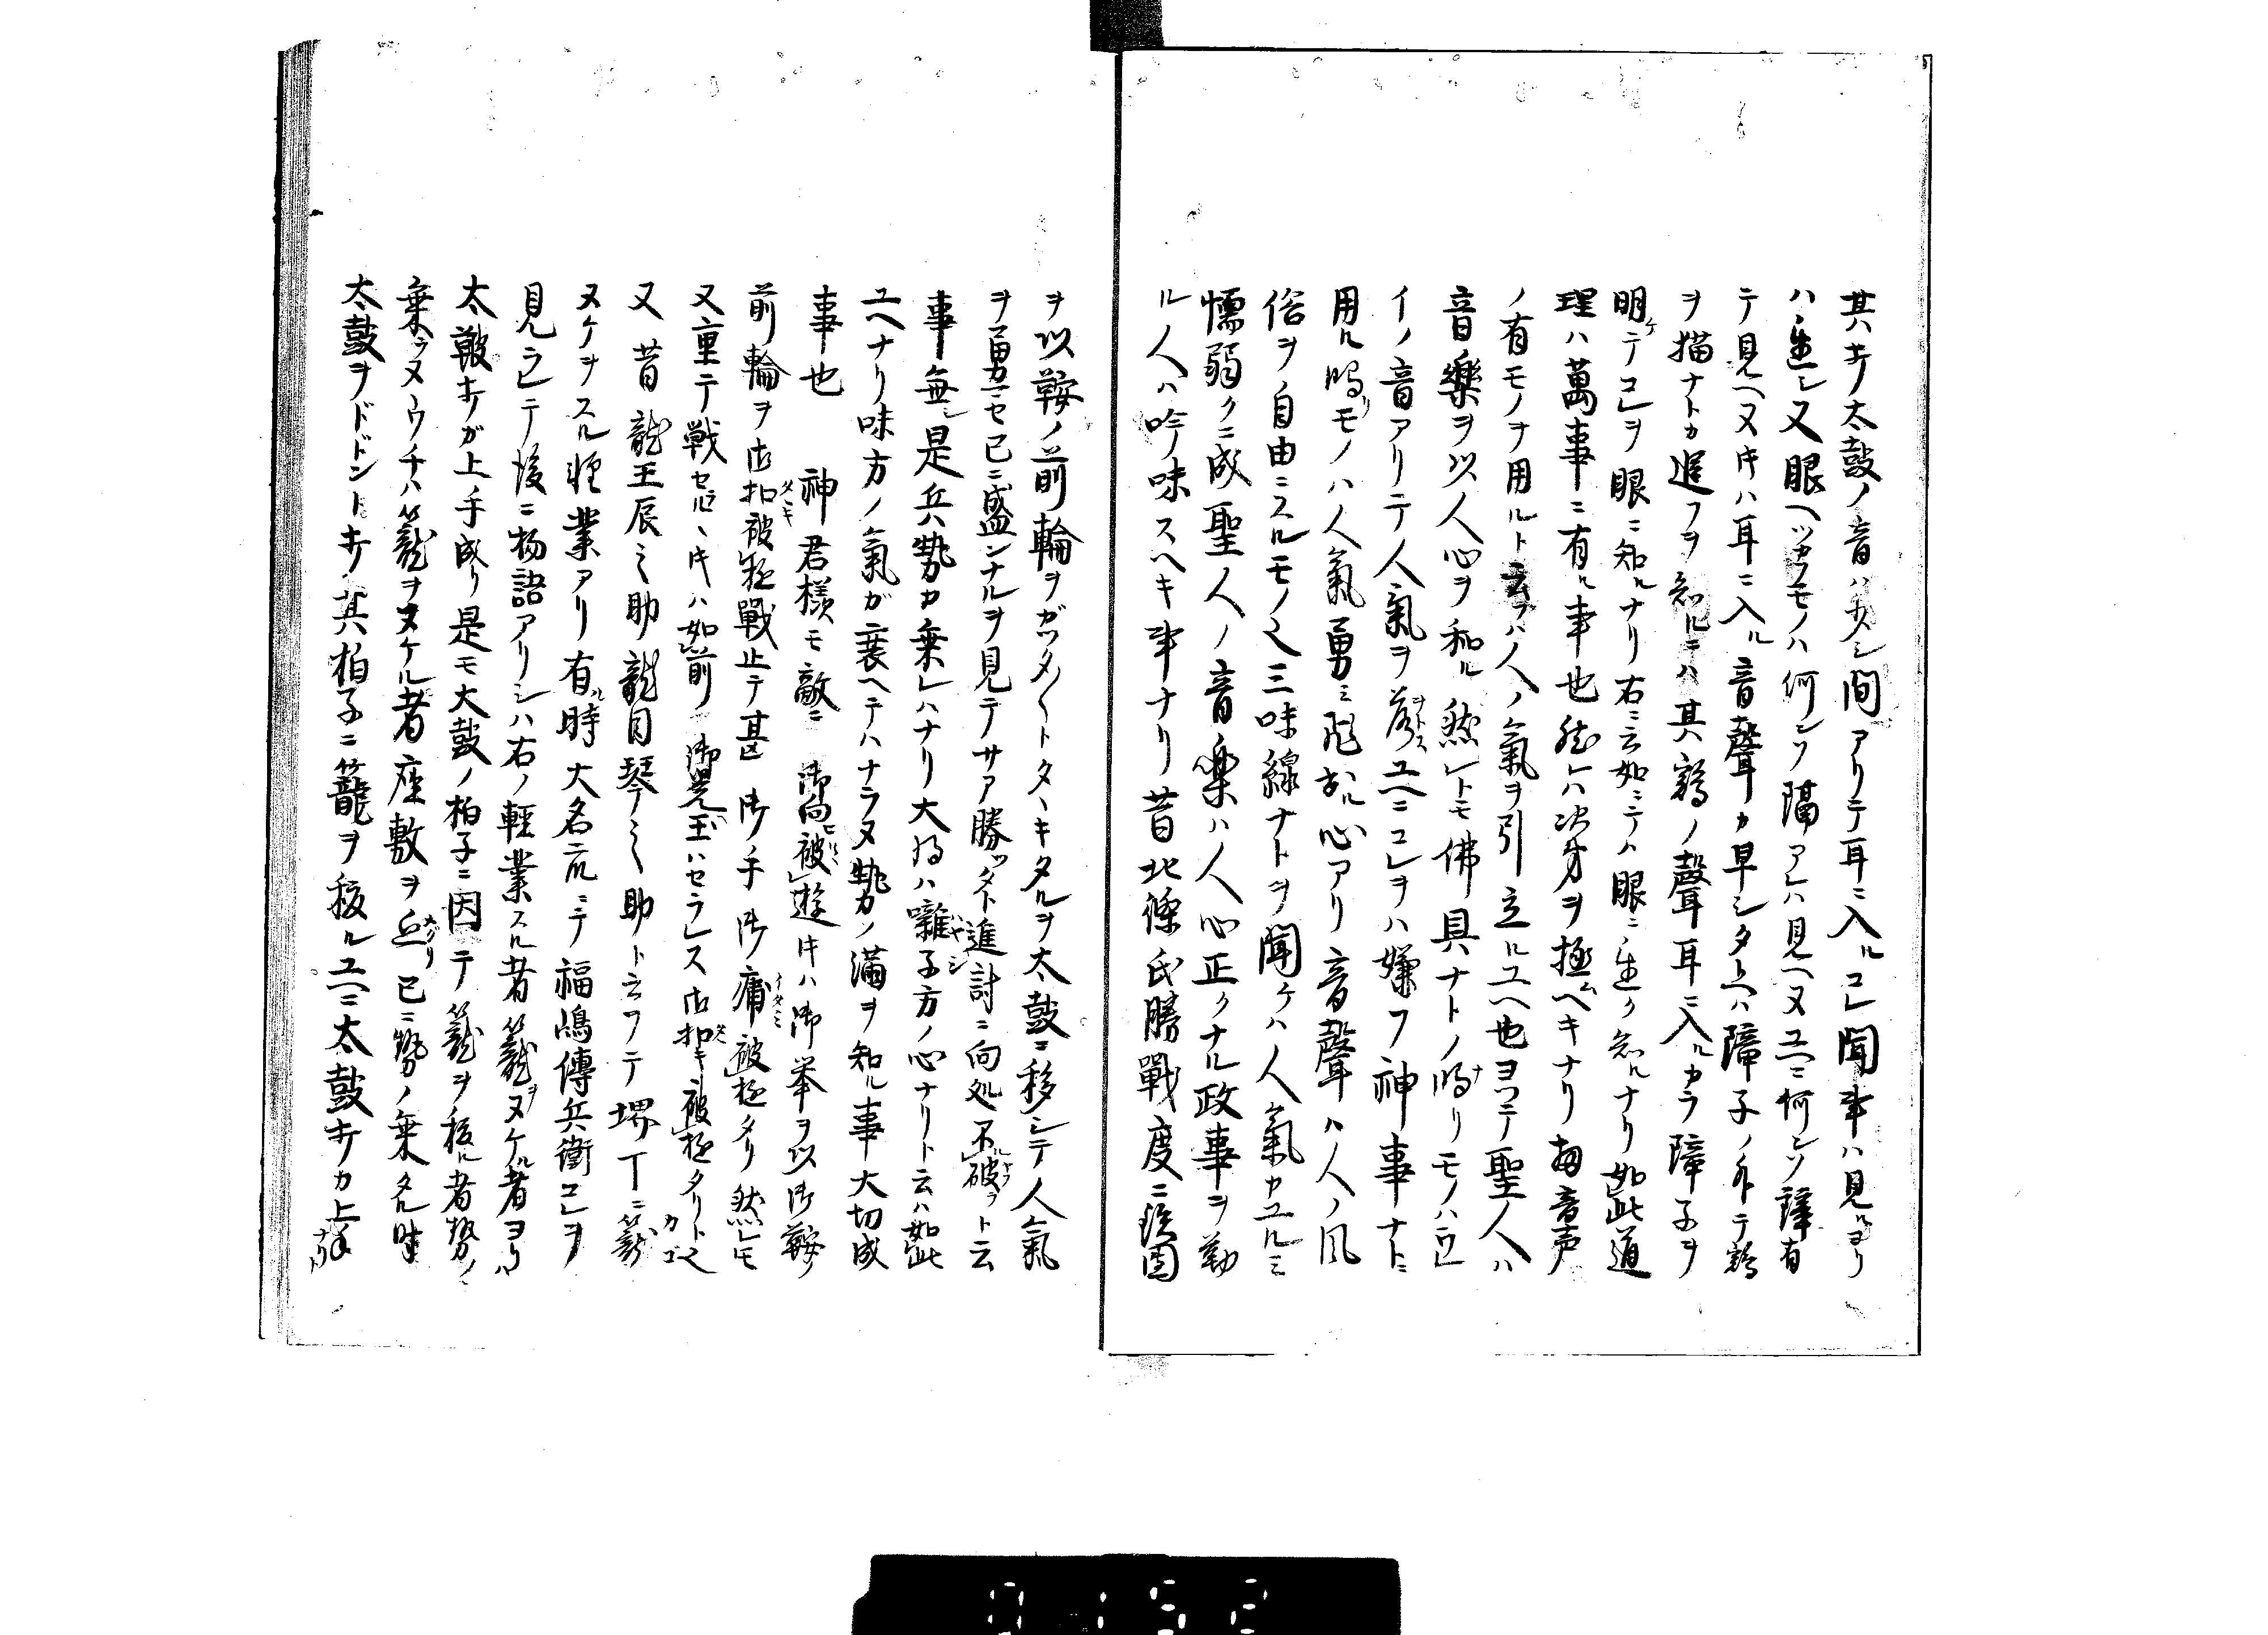 其キ太鼓ノ音ハ少シ間アリテ耳ニ入ルコレ聞事ハ見ルヨリ
ハ遅シ又眼ヘツカフモノハ何ンソ隔アレハ見ヘヌユヘニ何ンソ譯有
テ見ヘヌ時ハ耳ニ入ル音聲カ早シタトヘハ障子ノ外テ鶏
ヲ猫ナトカ追フヲ知ルニハ其鶏ノ聲耳ニ入ルカラ障子ヲ
明ケテコレヲ眼ニ知ルナリ右ニ云如ニテハ眼ニ遅ク知ルナリ如此道
理ハ萬事ニ有ル事也然レハ次第ヲ極ムヘキナリ扨音声
ノ有モノヲ用ルト云フハ人ノ氣ヲ引立ルユヘ也ヨツテ聖人ハ
音樂ヲ以人心ヲ和ル然レトモ佛具ナトノ鳴リモノハ
イノ音アリテ人氣ヲ落スユヘニコレヲハ嫌フ神事ナトニ
用ル鳴リモノハ人氣勇ミ心アリ音聲ハ人ノ風
俗ヲ自由ニスルモノ也三味線ナトヲ聞ケハ人氣カユルミ
懦弱クニ成聖人ノ音樂ハ人心正クナル政事ヲ勤
ル人ハ吟味スヘキ事ナリ昔北條氏勝戰度ニ
ヲ以鞍ノ前輪ヲガツタ〱トタヽキタルヲ太鼓ニ移シテ人氣
ヲ勇マセ已ニ盛ンナルヲ見テサア勝ツタト進討ニ向処不破ヲト云
事無シ是兵勢カ乗レハナリ大将ハ囃子方ノ心ナリト云ハ如此
ユヘナリ味方ノ氣ガ衰ヘテハナラヌ勢カノ満ヲ知ル事大切成
事也　神君樣モ敵ニ　御向被遊時ハ御挙ヲ以御鞍ノ
前輪ヲ御扣被極戰止テ甚御手御痛被極タリ然レモ
又重テ戦セラルヽ時ハ如前御晃玉ハセラレス御扣キ被極タリト也
又昔龍王辰之助龍目琴之助ト云フテ堺丁ニ籠
ヌケヲスル軽業アリ有ル時大名衆ニテ福嶋傳兵衛コレヲ
見ラレテ後ニ物語アリシハ右ノ輕業スル者籠ヲヌケル者ヨリハ
太鞁キガ上手成リ是モ大鼓ノ拍子ニ因テ籠ヲ抜ル者勢ノ
乗ラヌウチハ籠ヲヌケル者座敷ヲ廻リ已ニ勢ノ乗タル時
太鼓ヲドドントキ其拍子ニ籠ヲ抜ルユヘニ太鼓キカ上手ナリト